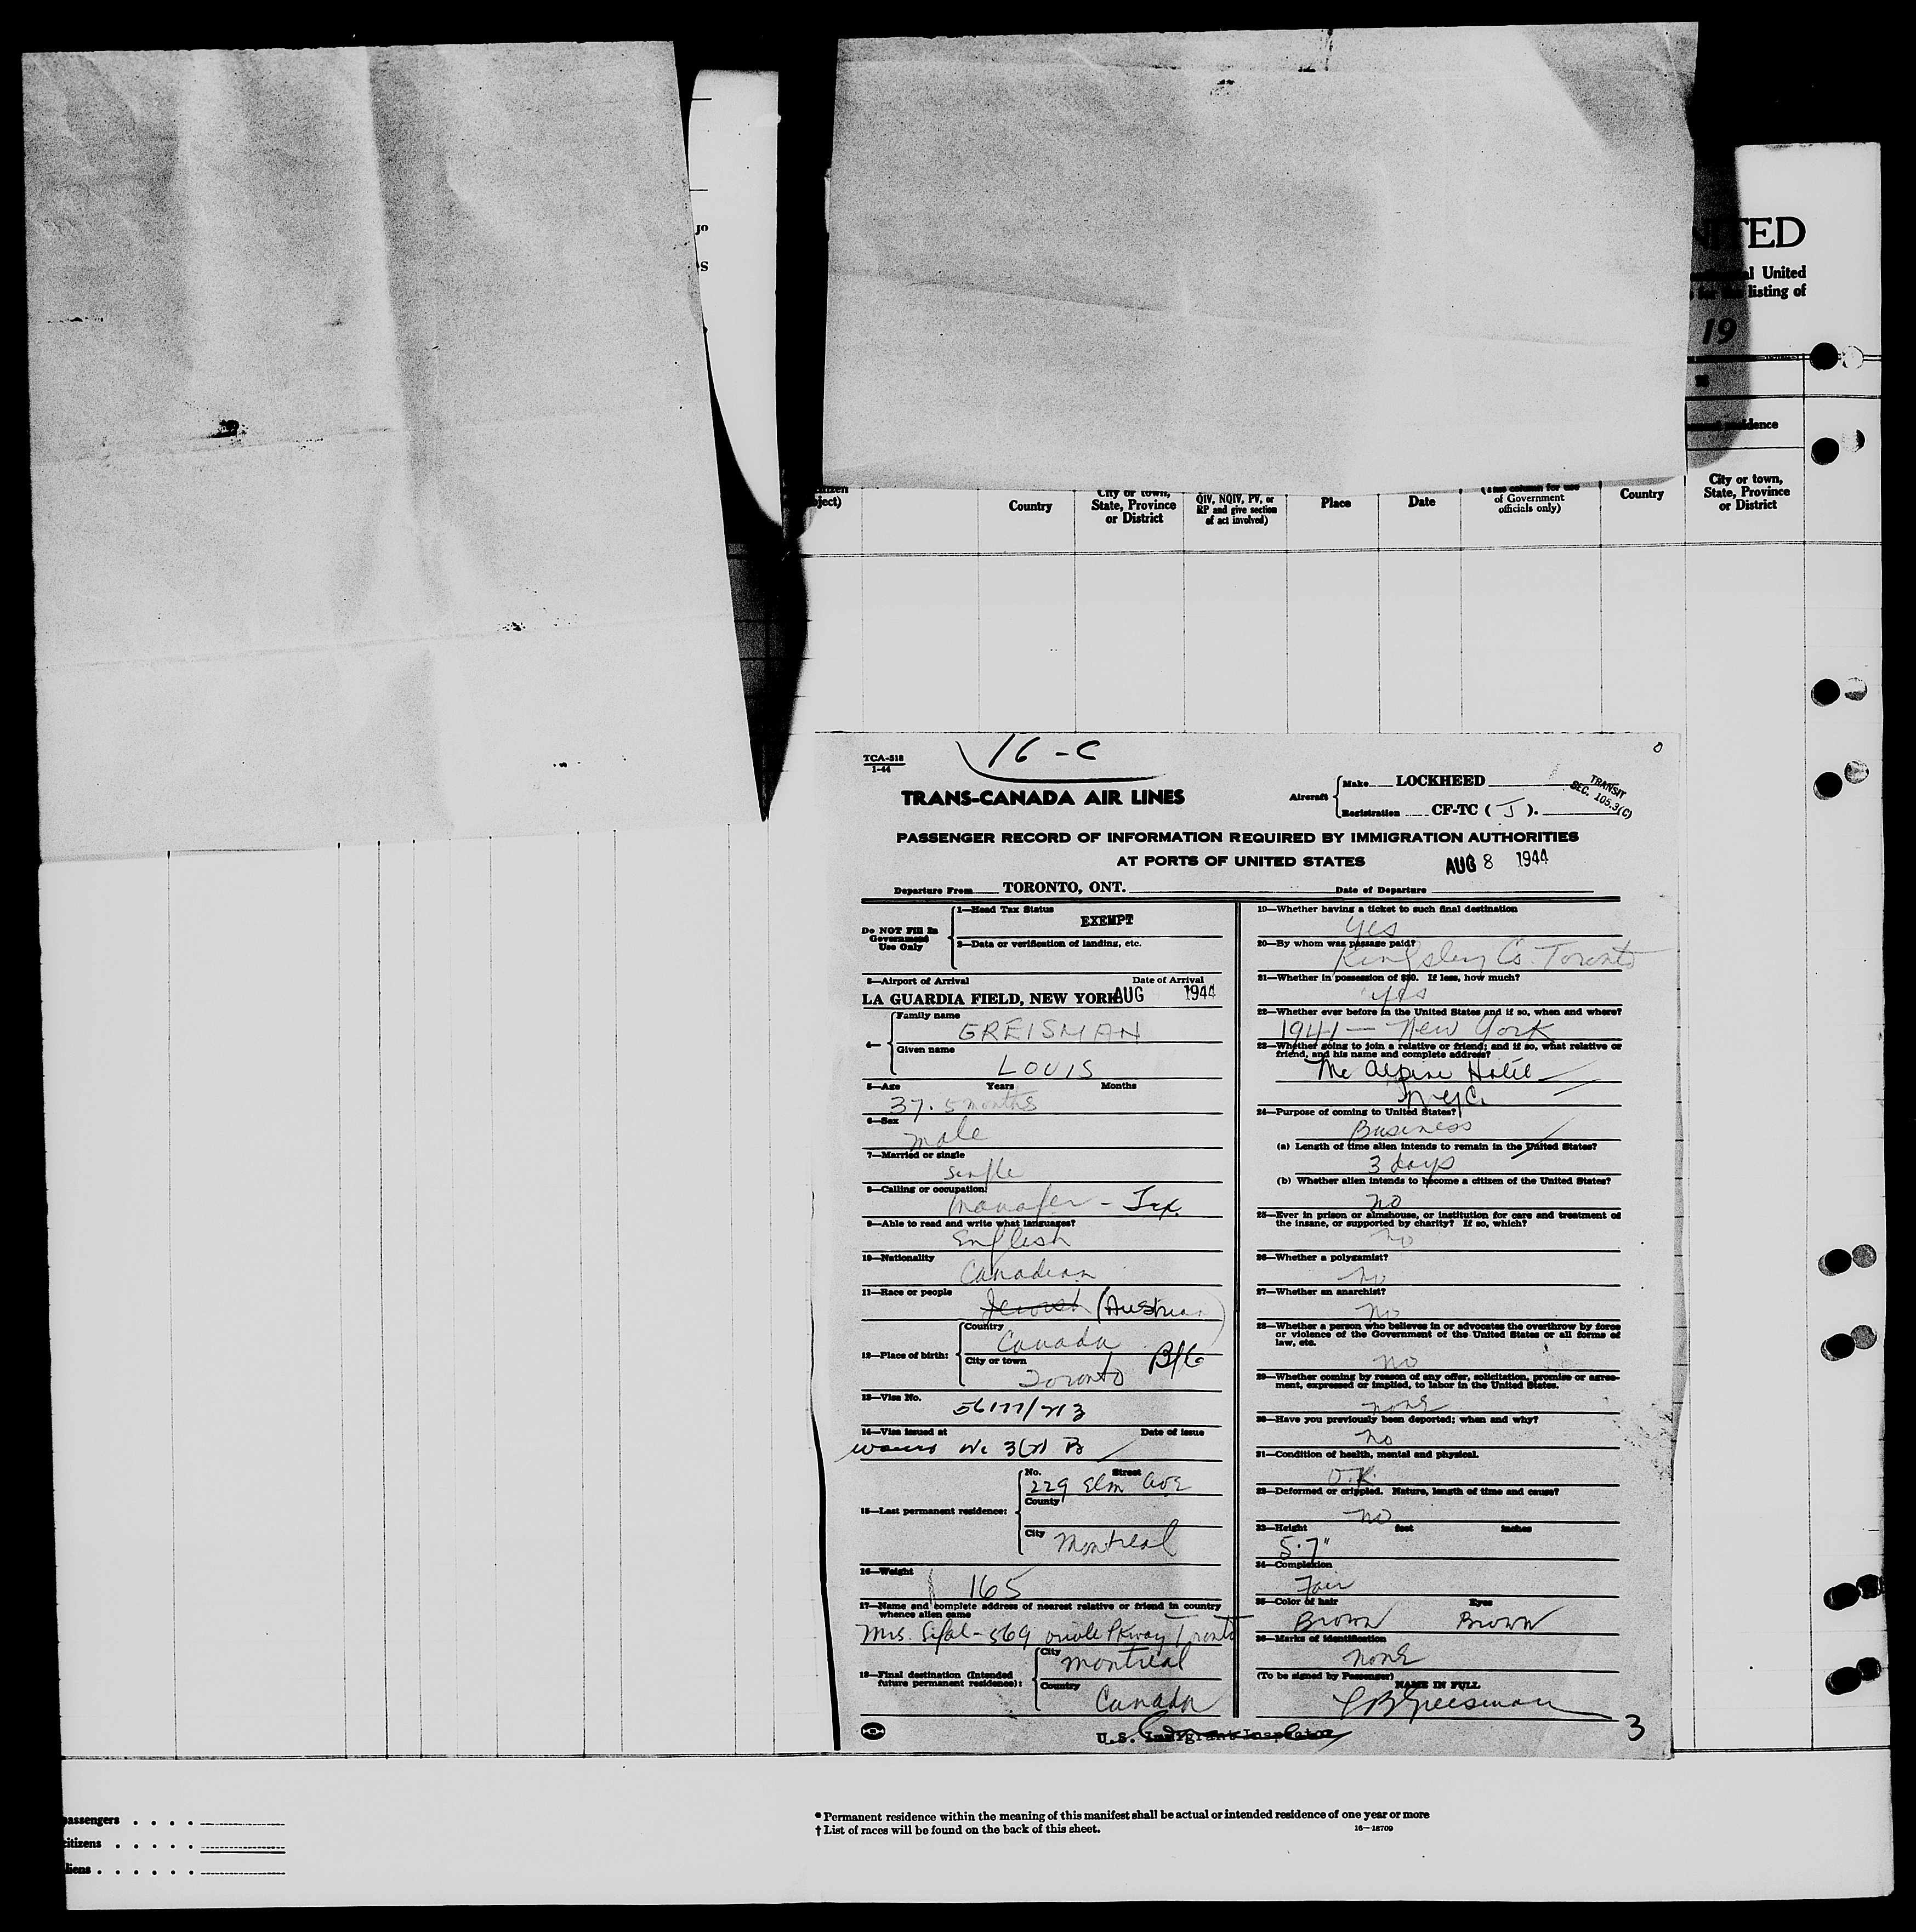 NITED
al United
listing of
19
Country
City or town,
State, Province
or District
QIV, NQIV, PV, or
RP and give section
of act involved)
Place
Date
(This column for use
of Government
officials only)
Country
City or town,
State, Province
or District
16-C
TCA-518
1-44
TRANS-CANADA AIR LINES
Aircraft
Make LOCKHEED
Registration CF-TC ( J ).
TRANSIT
SEC. 105.3(C)
PASSENGER RECORD OF INFORMATION REQUIRED BY IMMIGRATION AUTHORITIES
AT PORTS OF UNITED STATES
AUG 8 1944
Departure From TORONTO, ONT. Date of Departure
Do NOT Fill In
Government
Use Only
1—Head Tax Status
EXEMPT
2—Data or verification of landing, etc.
3—Airport of Arrival Date of Arrival
LA GUARDIA FIELD, NEW YORK AUG 1944
4—
Family name
GREISMAN
Given name
LOUIS
5—Age Years Months
37. 5 months
6—Sex
male
7—Married or single
single
8—Calling or occupation
Manager - Tex.
9—Able to read and write what languages?
English
10—Nationality
Canadian
11—Race or people
Jewish (Austrian)
12—Place of birth:
Country
Canada
City or town
Toronto
13—Visa No.
14—Visa issued at Date of issue
15—Last permanent residence:
No. Street
229 Elm Ave
County
City
Montreal
16—Weight
165
17—Name and complete address of nearest relative or friend in country
whence alien came
Mrs. - 569 Oriole Pkway Toronto
18—Final destination (Intended
future permanent residence):
City
Montreal
Country
Canada
19—Whether having a ticket to such final destination
Yes
20—By whom was passage paid?
Kingsley Co. Toronto
21—Whether in possession of $50. If less, how much?
Yes
22—Whether ever before in the United States and if so, when and where?
1941 — New York
23—Whether going to join a relative or friend; and if so, what relative or
friend, and his name and complete address?
Mc Alpine Hotel
N.Y.C.
24—Purpose of coming to United States?
Business
(a) Length of time alien intends to remain in the United States?
3 days
(b) Whether alien intends to become a citizen of the United States?
no
25—Ever in prison or almshouse, or institution for care and treatment of
the insane, or supported by charity? If so, which?
no
26—Whether a polygamist?
no
27—Whether an anarchist?
no
28—Whether a person who believes in or advocates the overthrow by force
or violence of the Government of the United States or all forms of
law, etc.
no
29—Whether coming by reason of any offer, solicitation, promise or agree-
ment, expressed or implied, to labor in the United States.
none
30—Have you previously been deported; when and why?
no
31—Condition of health, mental and physical.
O.K.
32—Deformed or crippled. Nature, length of time and cause?
no
33—Height feet inches
5.7"
34—Complexion
Fair
35—Color of hair Eyes
Brown Brown
36—Marks of identification
none
(To be signed by Passenger)
NAME IN FULL
L B Greisman
U.S. Immigrant Inspector
3
passengers
citizens
aliens
* Permanent residence within the meaning of this manifest shall be actual or intended residence of one year or more
† List of races will be found on the back of this sheet.
16—18709